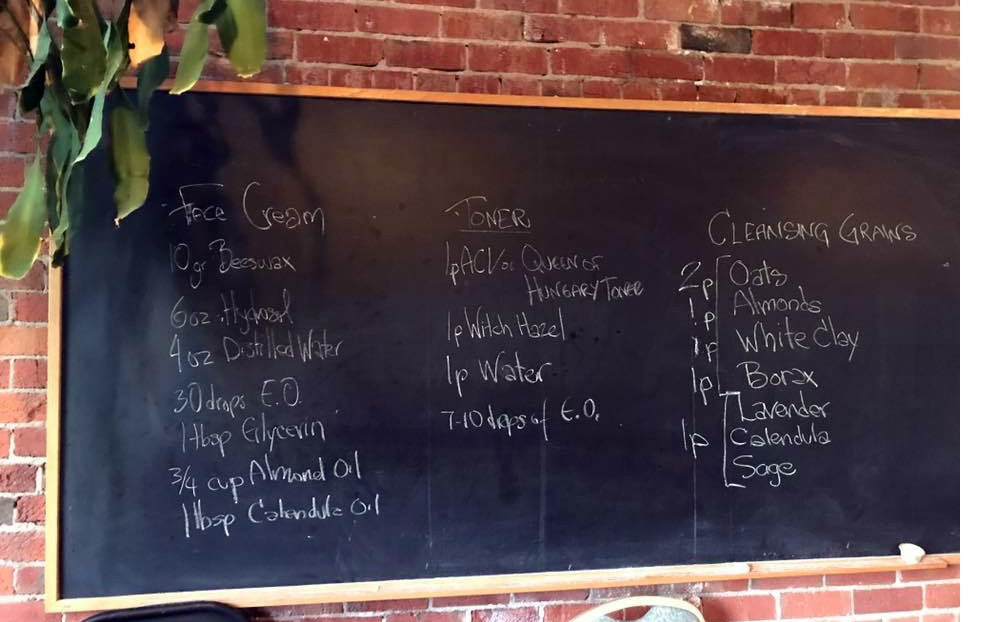 Face Cream
10gr Beeswax
6oz Hydrosol
4oz Distilled Water
30 drops E.O.
1 tbsp Glycerin
3/4 cup Almond Oil
1 tbsp Calendula Oil
TONER
1p ACV or QUEEN OF
HUNGARY TONER
1p Witch Hazel
1p Water
7-10 drops of E.O.
CLEANSING GRAINS
2p Oats
1p Almonds
1p White Clay
1p Borax
Lavender
1p Calendula
Sage